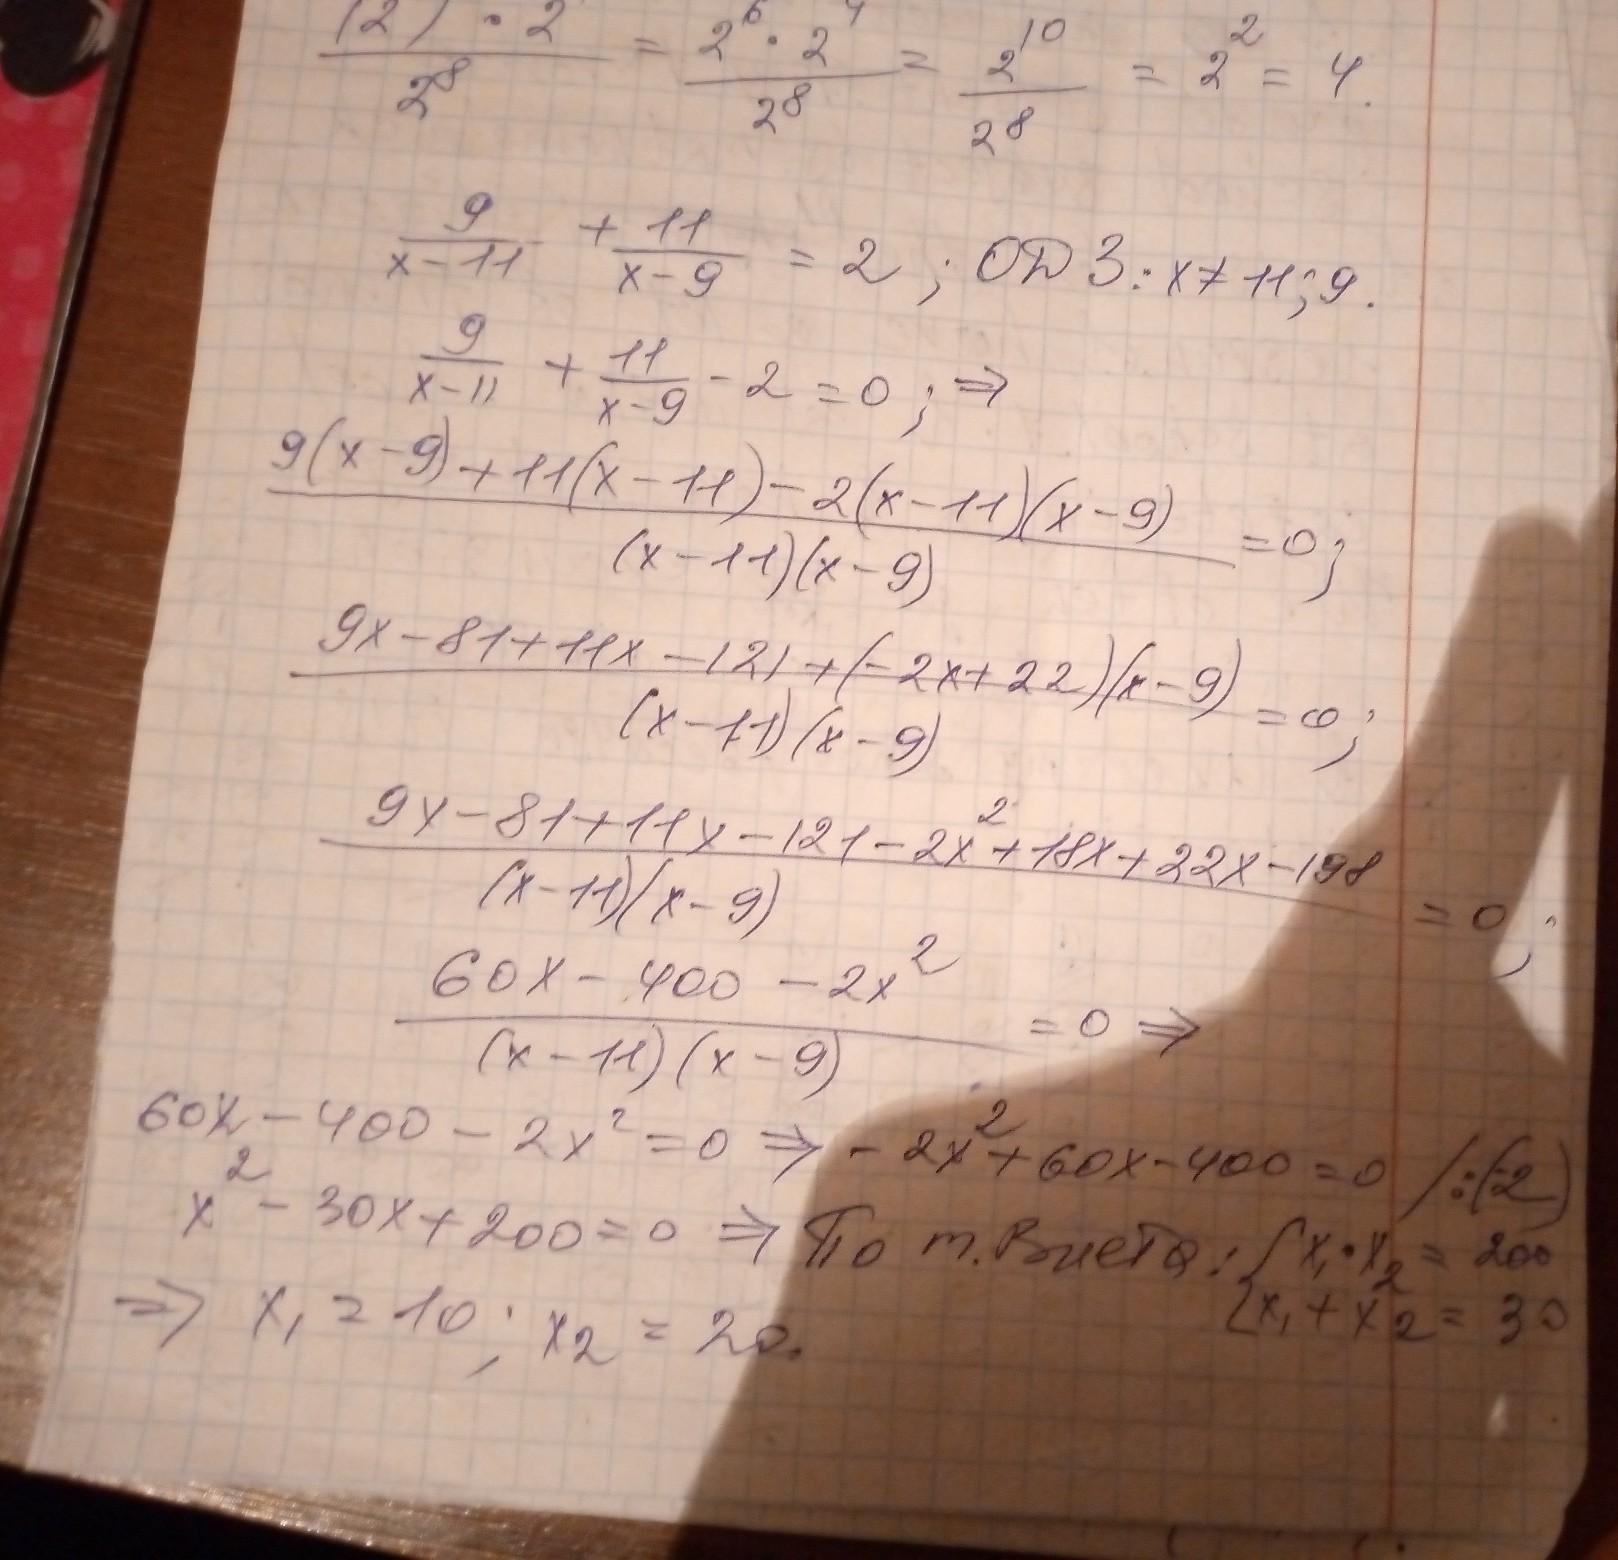 (2) · 2 / 2⁸ = 2⁶ · 2⁴ / 2⁸ = 2¹⁰ / 2⁸ = 2² = 4.
9/(x-11) + 11/(x-9) = 2 ; ОДЗ: x ≠ 11; 9.
9/(x-11) + 11/(x-9) - 2 = 0 ; ⇒
9(x-9) + 11(x-11) - 2(x-11)(x-9) / (x-11)(x-9) = 0;
9x - 81 + 11x - 121 + (-2x + 22)(x-9) / (x-11)(x-9) = 0;
9x - 81 + 11x - 121 - 2x² + 18x + 22x - 198 / (x-11)(x-9) = 0;
60x - 400 - 2x² / (x-11)(x-9) = 0 ⇒
60x - 400 - 2x² = 0 ⇒ -2x² + 60x - 400 = 0 / :(-2)
x² - 30x + 200 = 0 ⇒ По т. Виета: { x₁ · x₂ = 200
x₁ + x₂ = 30
⇒ x₁ = 10; x₂ = 20.